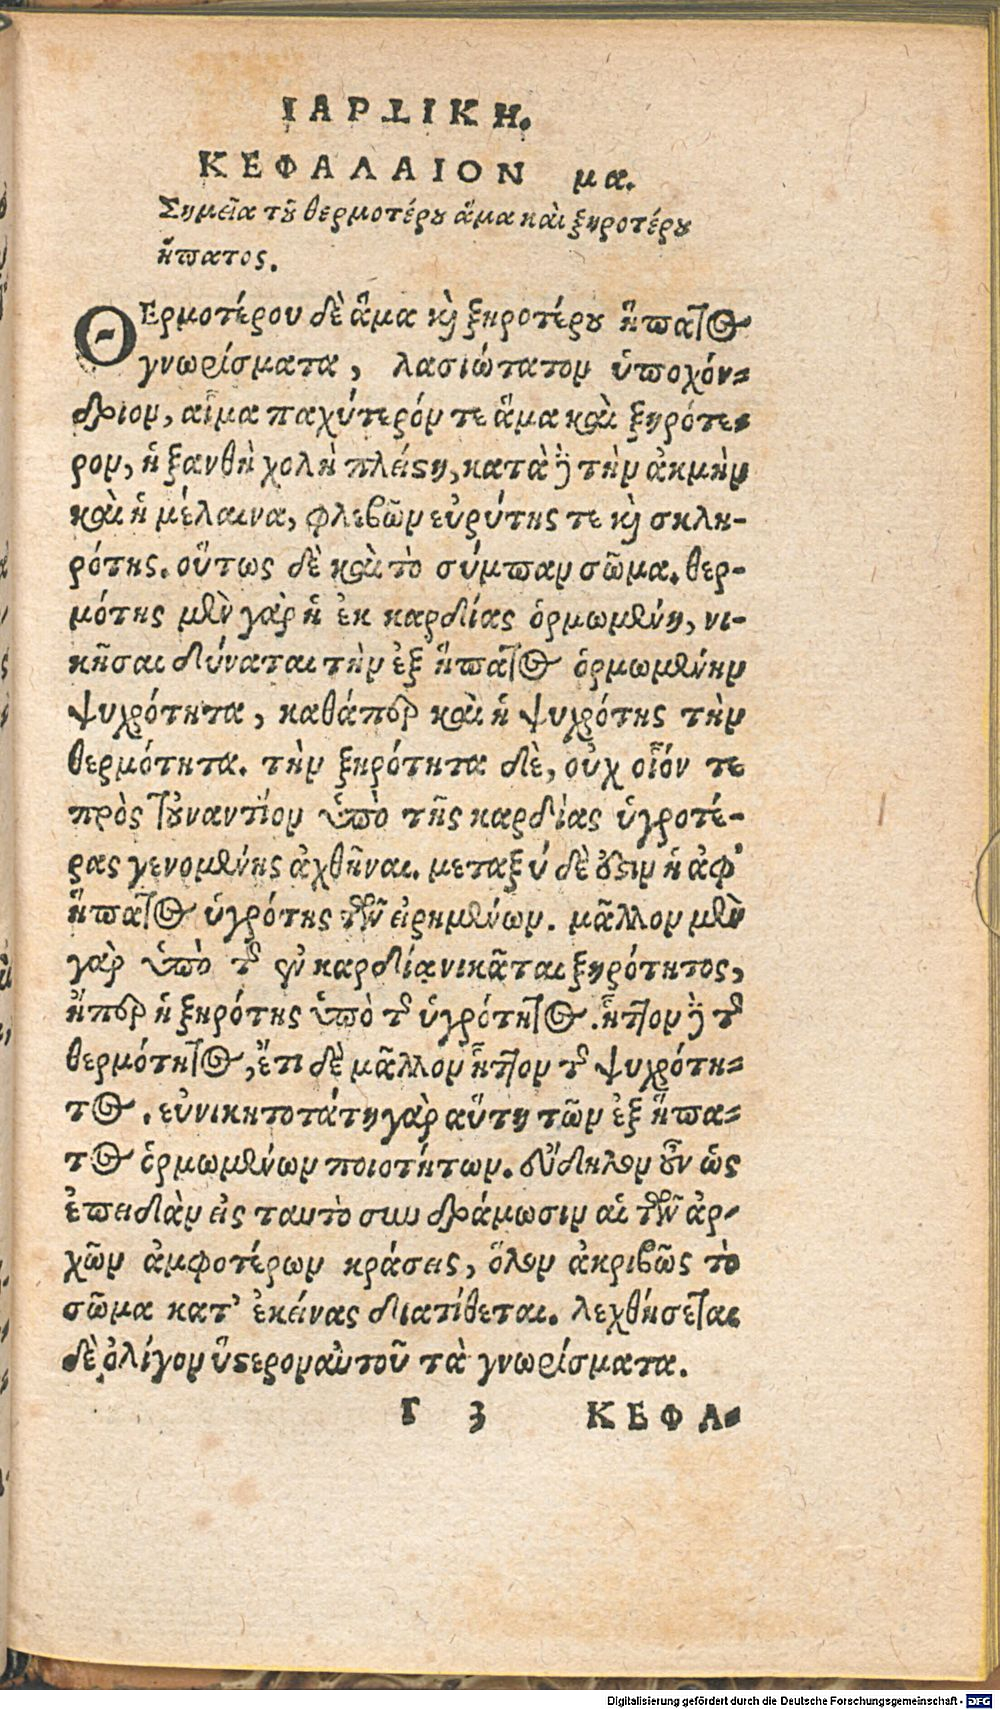 ΙΑΡΤΙΚΗ.
ΚΕΦΑΛΑΙΟΝ μα.
Σημεῖα τοῦ θερμοτέρου ἅμα καὶ ξηροτέρου
ἥπατος.
ΘΕρμοτέρου δὲ ἅμα καὶ ξηροτέρου ἥπατος
γνωρίσματα, λασιώτατον ὑποχόν-
δριον, αἷμα παχύτερόν τε ἅμα καὶ ξηρότε-
ρον, ἡ ξανθὴ χολὴ πλείστη, κατὰ δὲ τὴν ἀκμὴν
καὶ ἡ μέλαινα, φλεβῶν εὐρύτης τε καὶ σκλη-
ρότης. οὕτως δὲ καὶ τὸ σύμπαν σῶμα. θερ-
μότης μὲν γὰρ ἡ ἐκ καρδίας ὁρμωμένη, νι-
κῆσαι δύναται τὴν ἐξ ἥπατος ὁρμωμένην
ψυχρότητα, καθάπερ καὶ ἡ ψυχρότης τὴν
θερμότητα. τὴν ξηρότητα δὲ, οὐχ οἷόν τε
πρὸς τοὐναντίον ὑπὸ τῆς καρδίας ὑγροτέ-
ρας γενομένης ἀχθῆναι. μεταξύ δὲ οὖσιν ἡ ἀφ'
ἥπατος ὑγρότης τῶν εἰρημένων. μᾶλλον μὲν
γὰρ ὑπὸ τῆς ἐν καρδίᾳ νικᾶται ξηρότητος,
ἤπερ ἡ ξηρότης ὑπὸ τῆς ὑγρότητος. ἧττον δὲ τῆς
θερμότητος, ἔτι δὲ μᾶλλον ἧττον τῆς ψυχρότη-
τος. εὐνικητοτάτη γὰρ αὕτη τῶν ἐξ ἥπα-
τος ὁρμωμένων ποιοτήτων. εὔδηλον οὖν ὡς
ἐπειδὰν εἰς ταυτὸ συνδράμωσιν αἱ τῶν ἀρ-
χῶν ἀμφοτέρων κράσεις, ὅλον ἀκριβῶς τὸ
σῶμα κατ' ἐκείνας διατίθεται. λεχθήσεται
δὲ ὀλίγον ὕστερον αὐτοῦ τὰ γνωρίσματα.
Γ 3 ΚΕΦΑ-
Digitalisierung gefördert durch die Deutsche Forschungsgemeinschaft - DFG